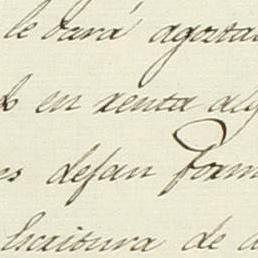 le bará agotar
en renta alg
es defan form
Escritura de a